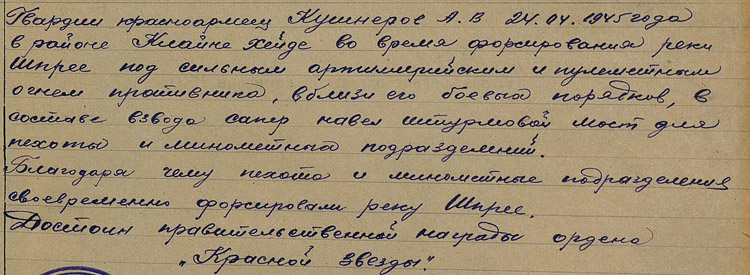 Гвардии красноармеец Кушнеров А.В 24.04.1945 года
в районе Клайне Хейде во время форсирования реки
Шпрее под сильным артиллерийским и пулеметным
огнем противника, вблизи его боевых порядков, в
составе взвода сапер навел штурмовой мост для
пехоты и минометных подразделений.
Благодаря чему пехота и минометные подразделения
своевременно форсировали реку Шпрее.
Достоин правительственной награды ордена
„Красной Звезды".